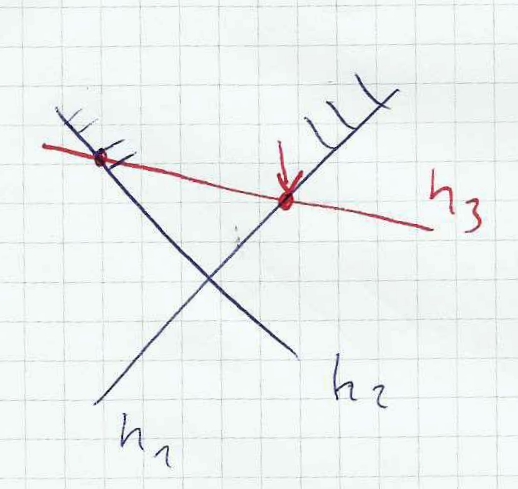 h3
h2
h1